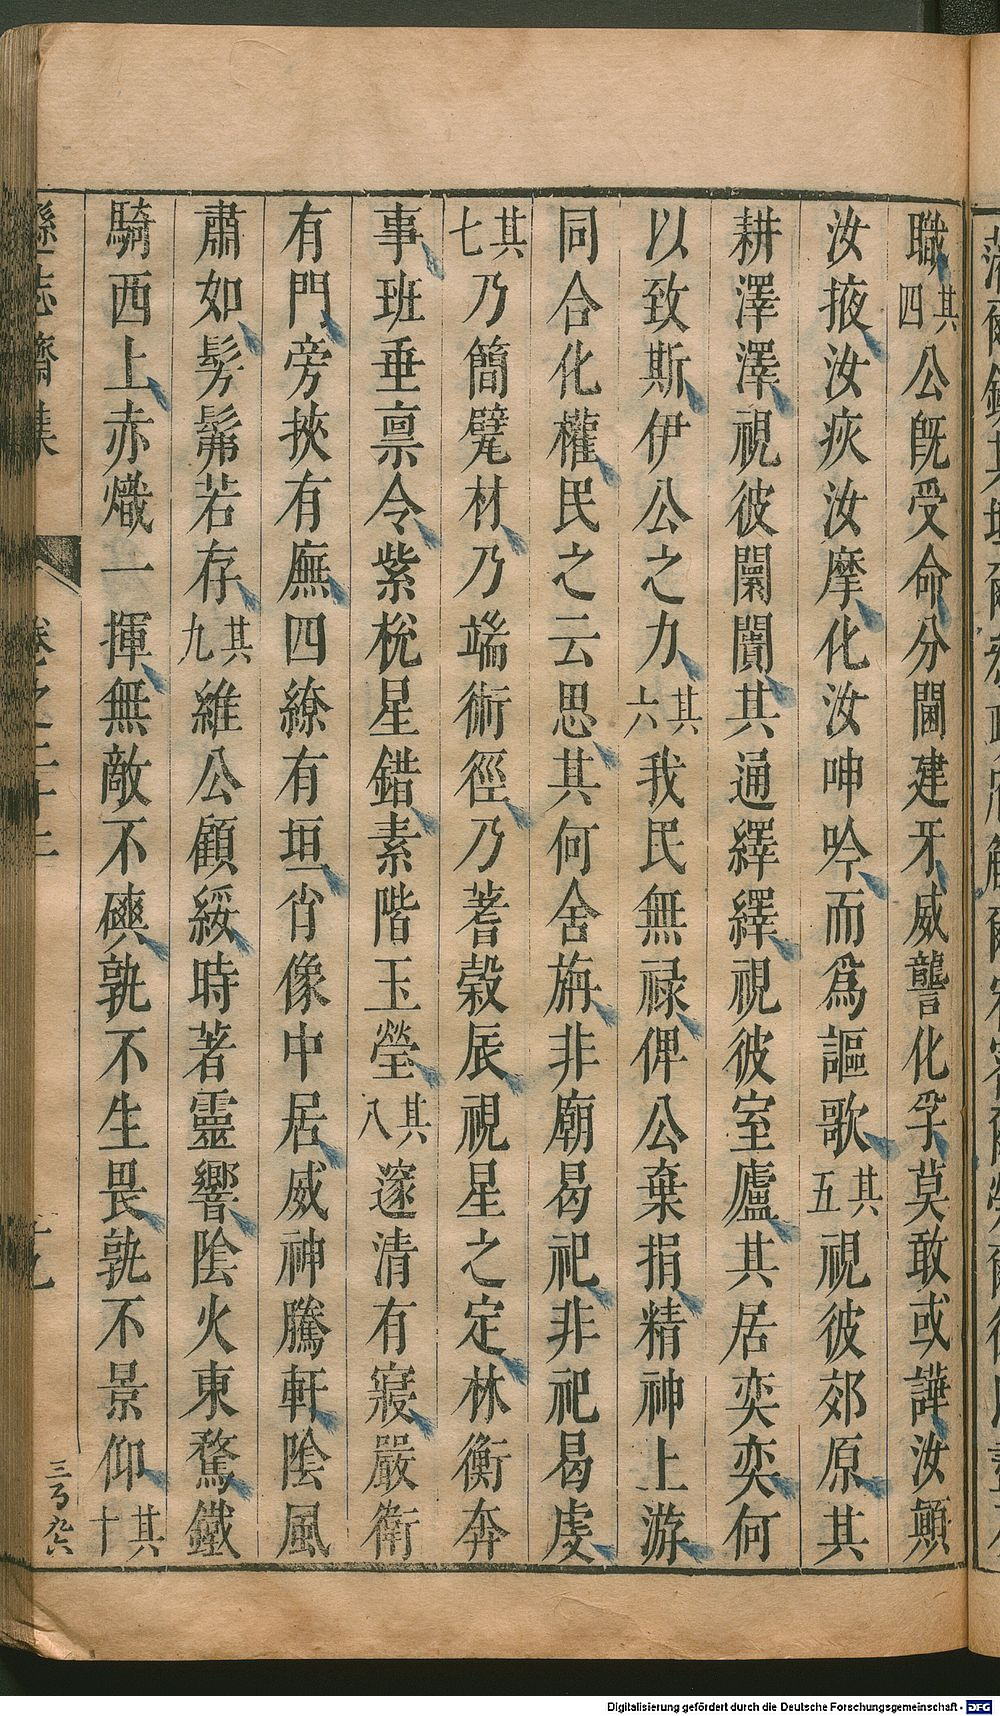 職其四公旣受命分閫建牙威讋化孚莫敢或譁汝顛
汝掖汝疢汝摩化汝呻吟而爲謳歌其五視彼郊原其
耕澤澤視彼闤闠其通繹繹視彼室廬其居奕奕何
以致斯伊公之力其六我民無祿俾公棄捐精神上游
同合化權民之云思其何舍旃非廟曷祀非祀曷虔
其七乃簡甓材乃端術徑乃蓍穀辰視星之定林衡奔
事班垂禀令紫梲星錯素階玉瑩其八邃清有寢嚴衛
有門旁挾有廡四繚有垣肖像中居威神騰軒陰風
肅如髣髴若存其九維公顧綏時著靈響陰火東騖鐵
騎西上赤熾一揮無敵不磢孰不生畏孰不景仰其十
遜志齋集
卷之二十二
三百九六
Digitalisierung gefördert durch die Deutsche Forschungsgemeinschaft - DFG